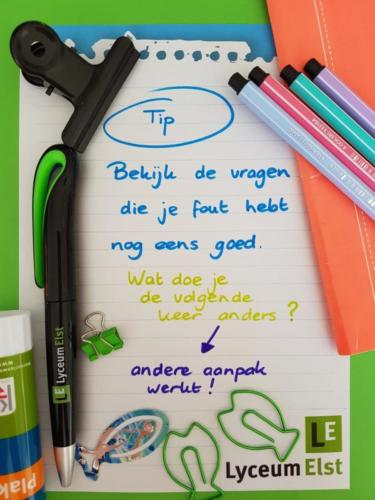 Tip
Bekijk de vragen
die je fout hebt
nog eens goed.
Wat doe je
de volgende
keer anders?
andere aanpak
werkt!
LE
Lyceum Elst
LE Lyceum Elst
Plak